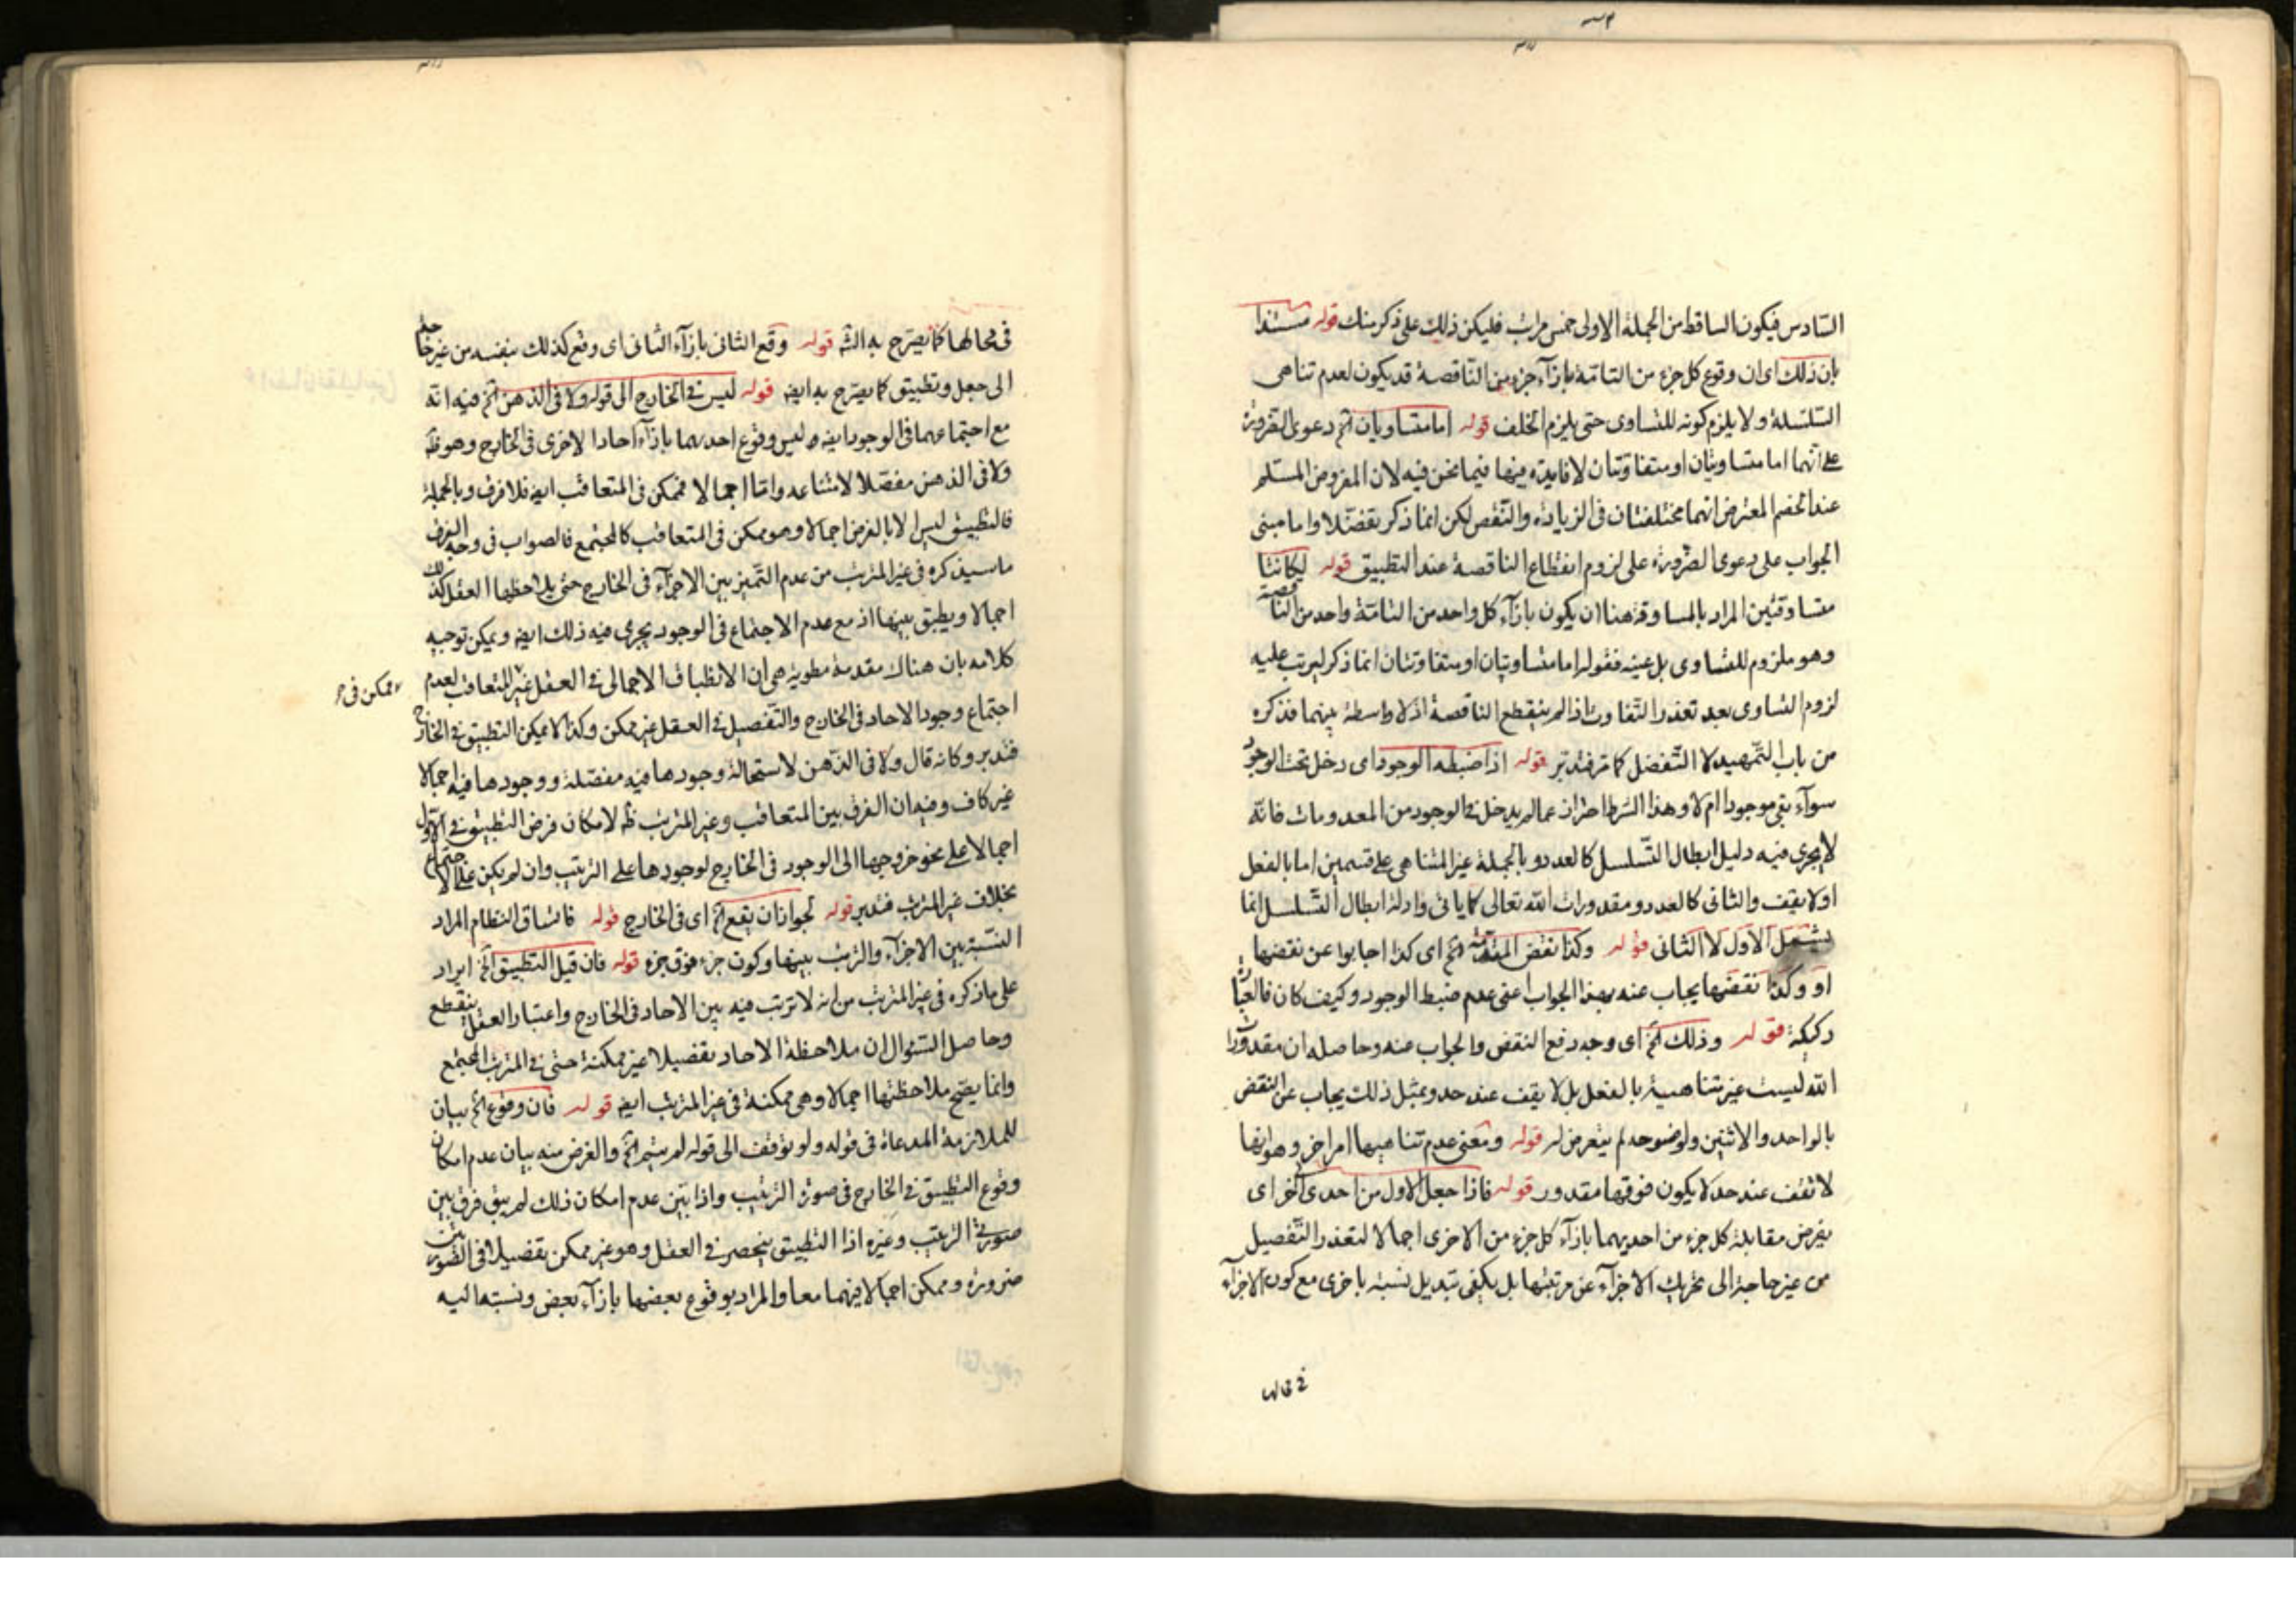 السادس فيكون الساقط من الجملة الاولى خمس مراتب فليكن ذلك على ذكر منك قوله مستندا
بان ذلك اى ان وقوع كل جزء من التامة بازآء جزء من الناقصة قد يكون لعدم تناهى
السلسلة ولا يلزم كونه للتساوى حتى يلزم الخلف قوله اما متساويان الخ دعوى الضرورة
على انهما اما متساويتان او متفاوتتان لا فايدة فيها فيما نحن فيه لان المفروض المسلم
عند الخصم المعترض انهما مختلفتان فى الزيادة والنقص لكن انما ذكر تفضلا واما مبنى
الجواب على دعوى الضرورة على لزوم انقطاع الناقصة عند التطبيق قوله ليكانتا
متساوقتين المراد بالمساوقة هنا ان يكون بازآء كل واحد من التامة واحد من الناقصة
وهو ملزوم للتساوى بل عينه فقوله اما متساويتان او متفاوتتان انما ذكر ليرتب عليه
لزوم التساوى بعد تعذر التفاوت اذ لم ينقطع الناقصة اذ لا واسطة بينهما فذكره
من باب التمهيد لا التفضل كما ترفتدبر قوله اذا ضبطه الوجود اى دخل تحت الوجود
سوآء بقى موجودا ام لا وهذا الشرط احتراز عما لم يدخل فى الوجود من المعدومات فانه
لا يجرى فيه دليل ابطال التسلسل كالعدد وبالجملة غير المتناهى على قسمين اما بالفعل
او لا يقف والثانى كالعدد ومقدورات الله تعالى كما ياتى وادلة ابطال التسلسل انما
تشمل الاول لا الثانى قوله وكذا نقض المقدمة الخ اى كذا اجابوا عن نقضها
او وكذا نقضها يجاب عنه بهذا الجواب اعنى عدم ضبط الوجود وكيف كان فالعبارة
ركيكة قوله وذلك الخ اى وجه دفع النقض والجواب عنه وحاصله ان مقدورات
الله ليست غير متناهية بالفعل بل لا يقف عند حد وبمثل ذلك يجاب عن النقض
بالواحد والاثنين ولوضوحه لم يتعرض له قوله ومعنى عدم تناهيها امر اخر وهو انها
لا تقف عند حد لا يكون فوقها مقدور قوله فاذا جعل الاول من احدى الخ اى
يفرض مقابلة كل جزء من احديهما بازآء كل جزء من الاخرى اجمالا لتعذر التفصيل
من غير حاجة الى تحريك الاجزآء عن مرتبتها بل يكفى تبديل نسبة باخرى مع كون الاجزآء
فى محالها كما يصرح به الشه قوله وقع الثانى بازآء الثانى اى وقع كذلك بنفسه من غير حاجة
الى جعل وتطبيق كما يصرح به ايضه قوله ليس فى الخارج الى قوله ولا فى الذهن الخ فيه انه
مع اجتماعهما فى الوجود ايضه ليس وقوع احديهما بازآء احاد الاخرى فى الخارج وهو ظه
ولا فى الذهن مفصلا لامتناعه واما اجمالا فممكن فى المتعاقب ايضه فلا فرق وبالجملة
فالتطبيق ليس الا بالفرض اجمالا وهو ممكن فى المتعاقب كالمجتمع فالصواب فى وجه الفرق
ما سيذكره فى غير المترتب من عدم التميز بين الاجزآء فى الخارج حتى يلاحظها العقل كذلك
اجمالا ويطبق بينها اذ مع عدم الاجتماع فى الوجود يجرى فيه ذلك ايضه ويمكن توجيه
كلامه بان هناك مقدمة مطوية هى ان الانطباق الاجمالى فى العقل غير المتعاقب لعدم
ممكن فى
اجتماع وجود الاحاد فى الخارج والتفصيل فى العقل غير ممكن وكذا لا يمكن التطبيق فى الخارج
فتدبر وكانه قال ولا فى الذهن لاستحالة وجودها فيه مفصلة ووجودها فيه اجمالا
غير كاف وفيه ان الفرق بين المتعاقب وغير المترتب ظه لامكان فرض التطبيق فى الاول
اجمالا على نحو خروجها الى الوجود فى الخارج لوجودها على الترتيب وان لم يكن على الاجتماع
بخلاف غير المترتب فتدبر قوله لجواز ان يقع الخ اى فى الخارج قوله فاتساق النظام المراد
النسبة بين الاجزآء والترتيب بينها وكون جزء فوق جزء قوله فان قيل التطبيق الخ ايراد
على ما ذكره فى غير المترتب من انه لا ترتب فيه بين الاحاد فى الخارج واعتبار العقل ينقطع
وحاصل السئوال ان ملاحظة الاحاد تفصيلا غير ممكنة حتى فى المترتب المجتمع
وانما يصح ملاحظتها اجمالا وهى ممكنة فى غير المترتب ايضه قوله فان وقوع الخ بيان
للملازمة المدعاة فى قوله ولو توقف الى قوله لم يتم الخ والغرض منه بيان عدم امكان
وقوع التطبيق فى الخارج فى صورة الترتيب واذا تبين عدم امكان ذلك لم يبق فرق بين
صورتى الترتيب وغيره اذا التطبيق ينحصر فى العقل وهو غير ممكن تفصيلا فى الصورتين
ضرورة وممكن اجمالا فيهما معا والمراد بوقوع بعضها بازآء بعض ونسبته اليه
فى محالها